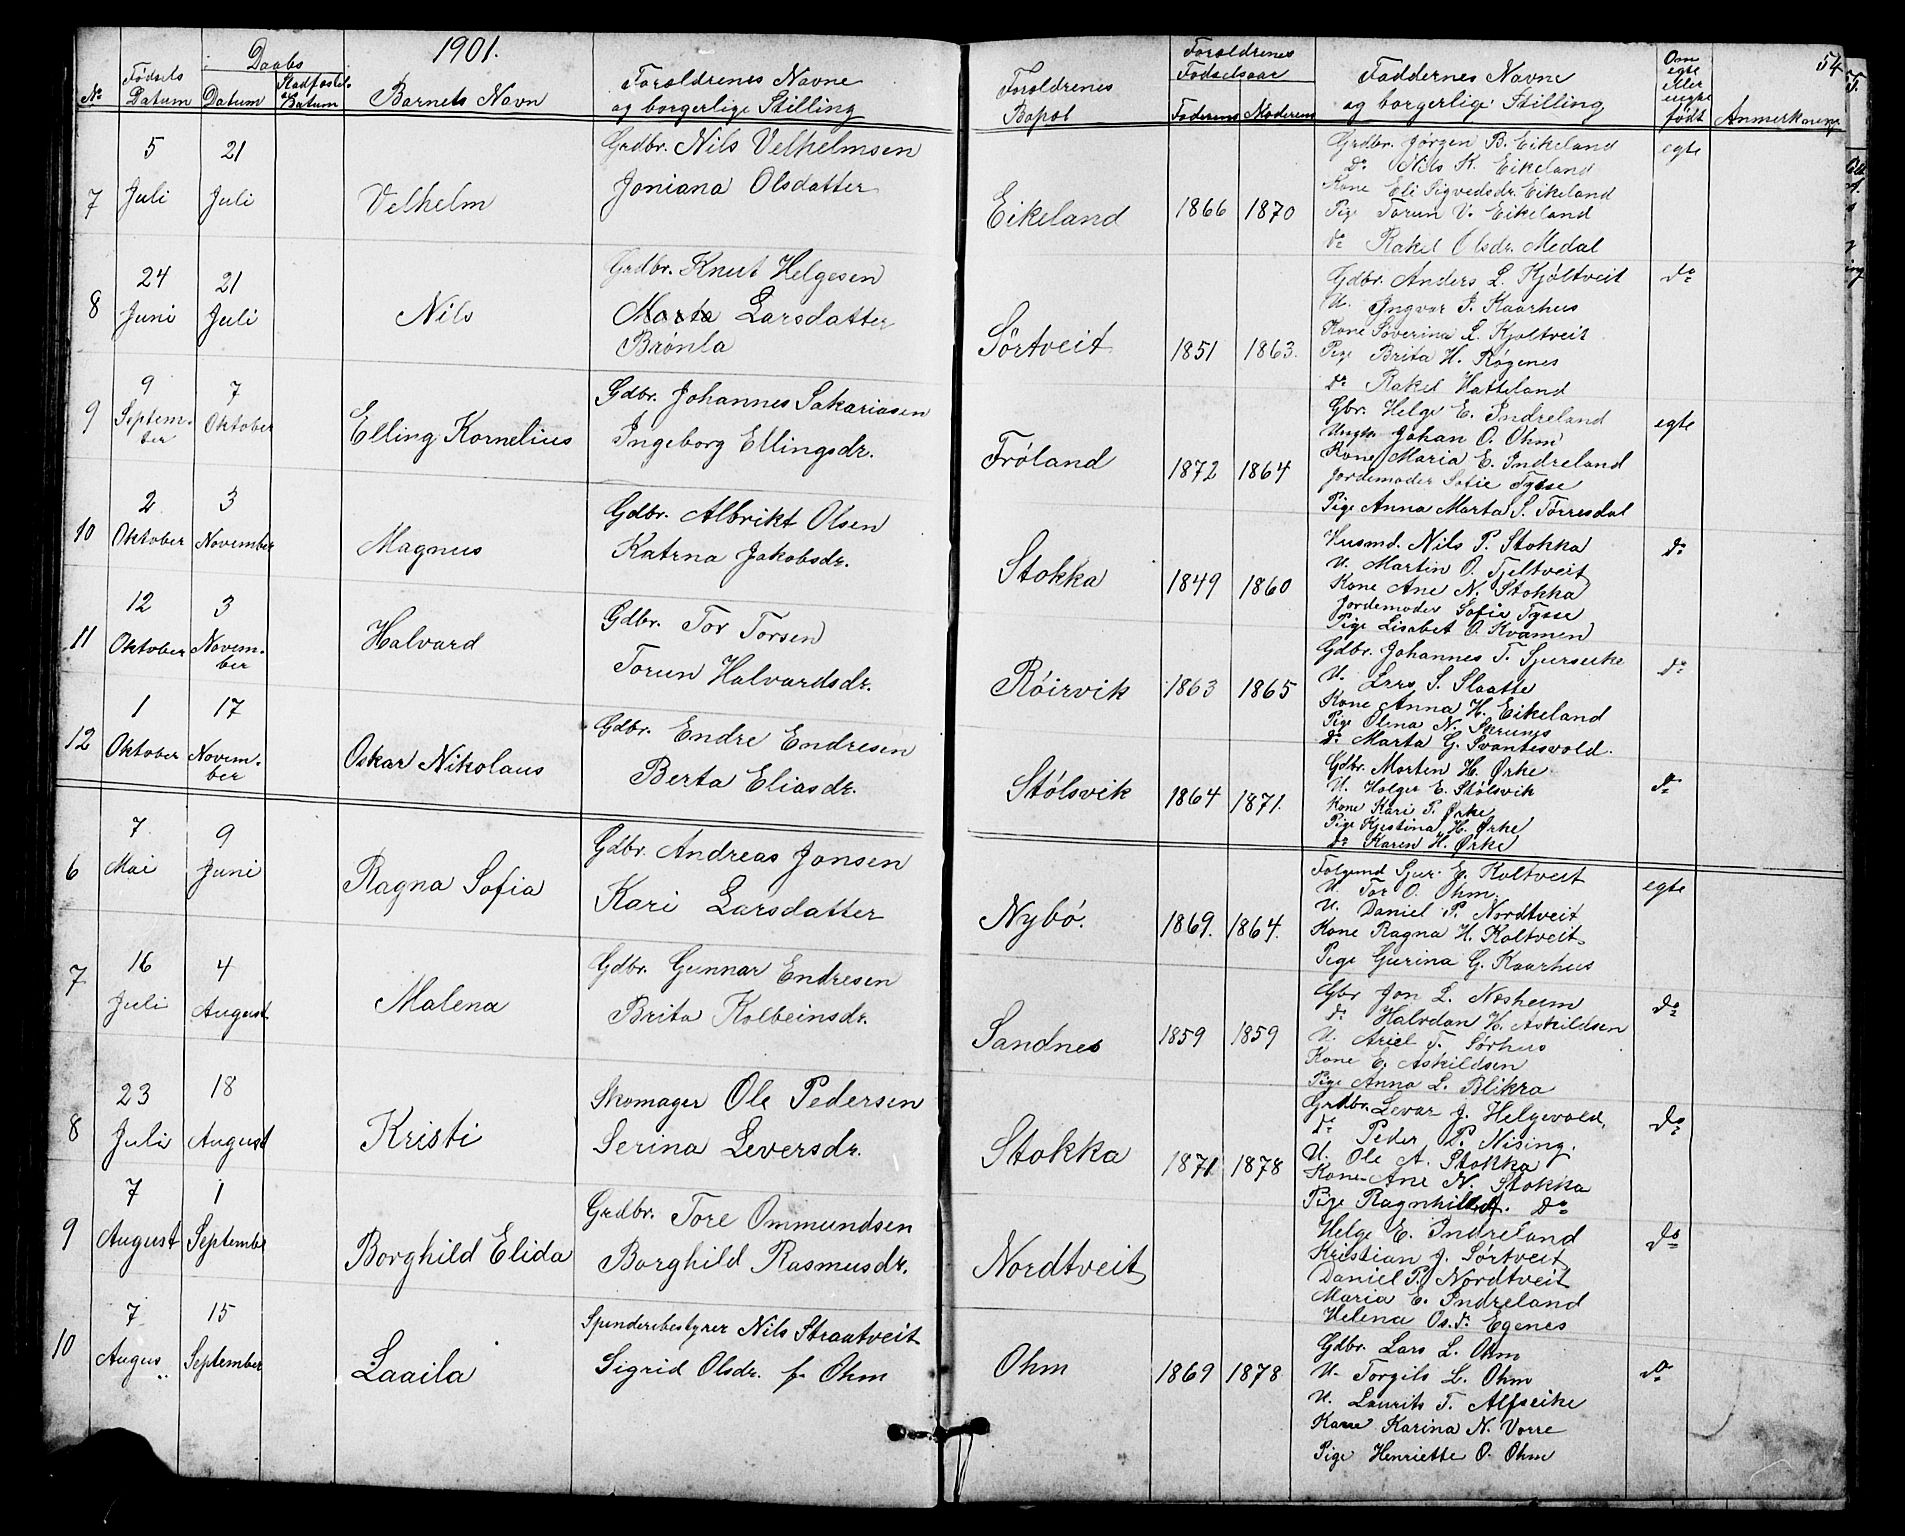 1901.
54
No
Fødsels Datum
Daabs
Datum
Stadfæstel. Datum
Barnets Navn
Forældrenes Navne
og borgerlige Stilling
Forældrenes Bopæl
Forældrenes Fødselsaar
Faderens
Moderens
Faddernes Navne
og borgerlige Stilling
Om egte eller uegte født
Anmerkning
7
5 Juli
21 Juli
Velhelm
Grdbr. Nils Velhelmsen
Joniana Olsdatter
Eikeland
1866
1870
Grdbr. Jørgen B. Eikeland
do Nils K. Eikeland
Kone Eli Sigvedsdr. Eikeland
Pige Torun V. Eikeland
do Rakel Olsdr. Medal
egte
8
24 Juni
21 Juli
Nils
Grdbr. Knut Helgesen
Marta Larsdatter
Brønla
Sørtveit
1851
1863.
Gdbr. Anders L. Kjøltveit
U. Ingvar J. Kaarhus
Kone Severina L. Kjoltveit
Pige Brita H. Røgenes
do Rakel Hatteland
do
9
9 Septem-
ber
7 Oktober
Elling Kornelius
Gdbr. Johannes Sakariasen
Ingeborg Ellingsdr.
Frøland
1872
1864
Gbr. Helge E. Indreland
Ungk. Johan O. Ohm
Kone Maria E. Indreland
Jordemoder Sofie Tysse
Pige Anna Marta S. Torresdal
egte
10
2 Oktober
3 November
Magnus
Gdbr. Albrikt Olsen
Katrna Jakobsdr.
Stokka
1849
1860
Husmd. Nils P. Stokka
U. Martin O. Tjeltveit
Kone Ane N. Stokka
Jordemoder Sofie Tysse
Pige Lisabet O. Kvamen
do
11
12 Oktober
3 Novem-
ber
Halvard
Gdbr. Tor Torsen
Torun Halvardsdr.
Røirvik
1863
1865
Gdbr. Johannes T. Sjurseike
U. Lars S. Slaatte
Kone Anna H. Eikeland
Pige Olena N. Skrunes
do Marta G. Svantesvold.
do
12
1 Oktober
17 Novem-
ber
Oskar Nikolaus
Gdbr. Endre Endresen
Berta Eliasdr.
Stølsvik
1864
1871.
Gdbr. Morten H. Ørke
U. Holger E. Stølsvik
Kone Kari P. Ørke
Pige Kjestina H. Ørke
do Karen H. Ørke
do
6
7 Mai
9 Juni
Ragna Sofia
Gdbr. Andreas Jonsen
Kari Larsdatter
Nybø.
1869.
1864.
Folgemd Sjur J. Koltveit
U. Tor O. Ohm
U. Daniel P. Nordtveit
Kone Ragna H. Koltveit
Pige Gurina G. Kaarhus
egte
7
16 Juli
4 August
Malena
Gdbr. Gunnar Endresen
Brita Kolbeinsdr.
Sandnes
1859
1859
Gbr Jon L. Nesheim
do Halvdan H. Askildsen
U. Ariel T. Sørhus
Kone E. Askildsen
Pige Anna L. Blikra
do
8
23 Juli
18 August
Kristi
Skomager Ole Pedersen
Serina Leversdr.
Stokka
1871
1878
Grdbr. Levar J. Helgevold,
do Peder P. Nising.
U. Ole A. Stokka
Kone Ane N. Stokka
Pige Ragnhild do
do
9
7 August
1 Septembe
Borghild Elida
Grdbr. Tore Ommundsen
Borghild Rasmusdr.
Nordtveit
Helge E. Indreland
Kristian J. Sørtveit
Daniel P. Nordtveit
Maria E. Indreland
Helena Os.dr Egenes
do
10
7 Augus
15 September
Laaila
Spinderibestyrer Nils Straatveit
Sigrid Olsdr. f. Ohm
Ohm
1869
1878
Gdbr. Lars L. Ohm
U. Torgils L. Ohm
U. Laurits T. Alfseike
Kone Karina N. Vorre
Pige Henriette O. Ohm
do